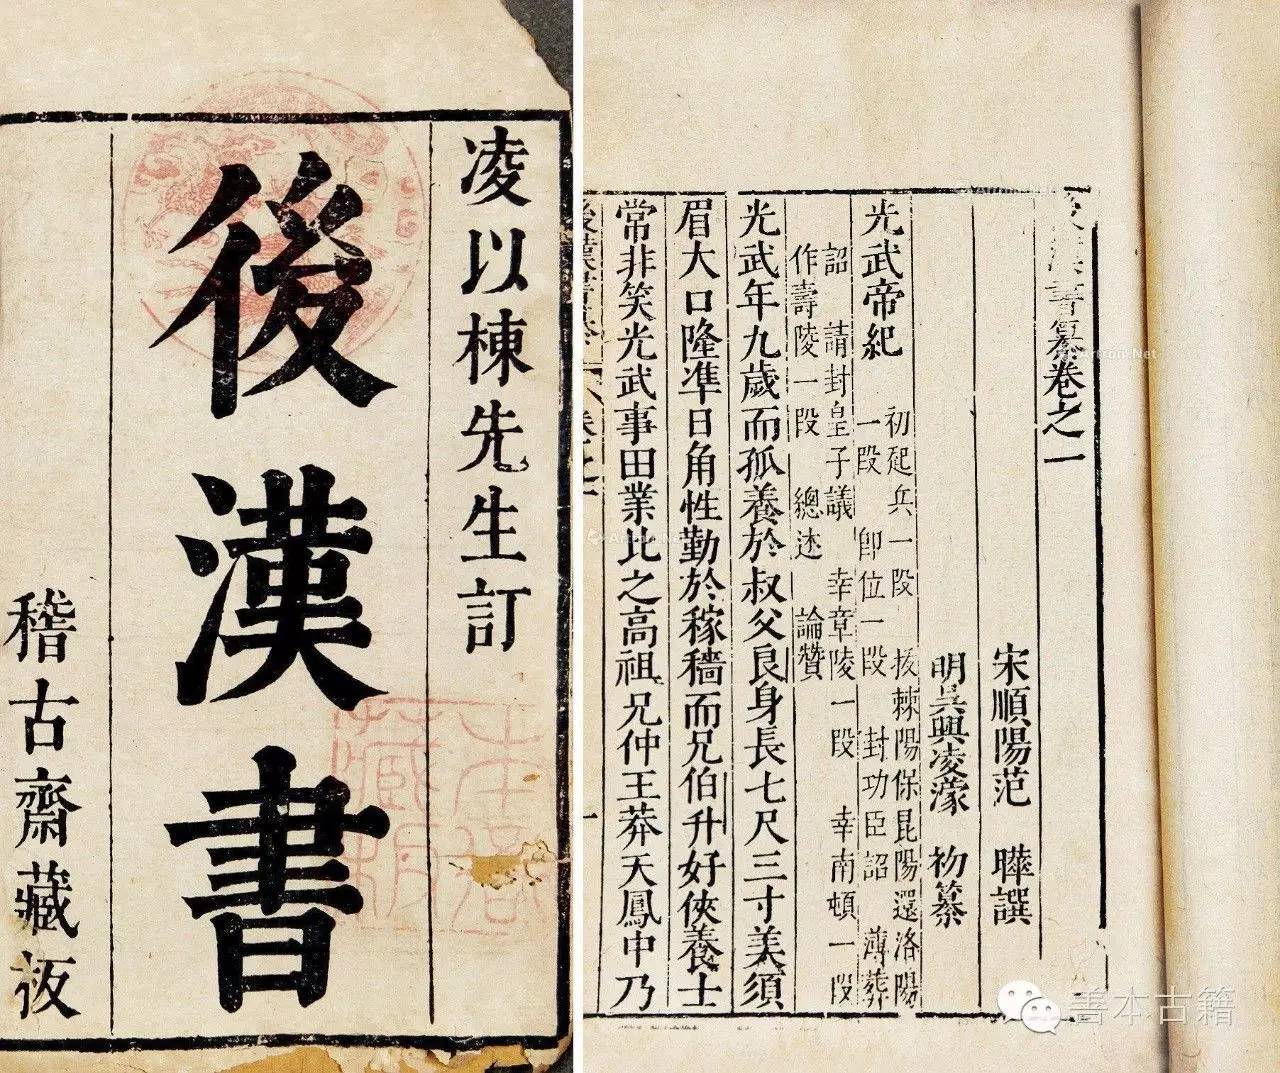 凌以棟先生訂
後漢書
稽古齋藏板
後漢書纂卷之一
宋順陽范 曄譔
明吳興凌濛 初纂
光武帝紀 初起兵一段 拔棘陽保昆陽還洛陽
一段 即位一段 封功臣詔 薄葬
詔 請封皇子議 幸章陵一段 幸南頓一段
作壽陵一段 總述 論贊
光武年九歲而孤養於叔父良身長七尺三寸美須
眉大口隆準日角性勤於稼穡而兄伯升好俠養士
常非笑光武事田業比之高祖兄仲王莽天鳳中乃
善本古籍